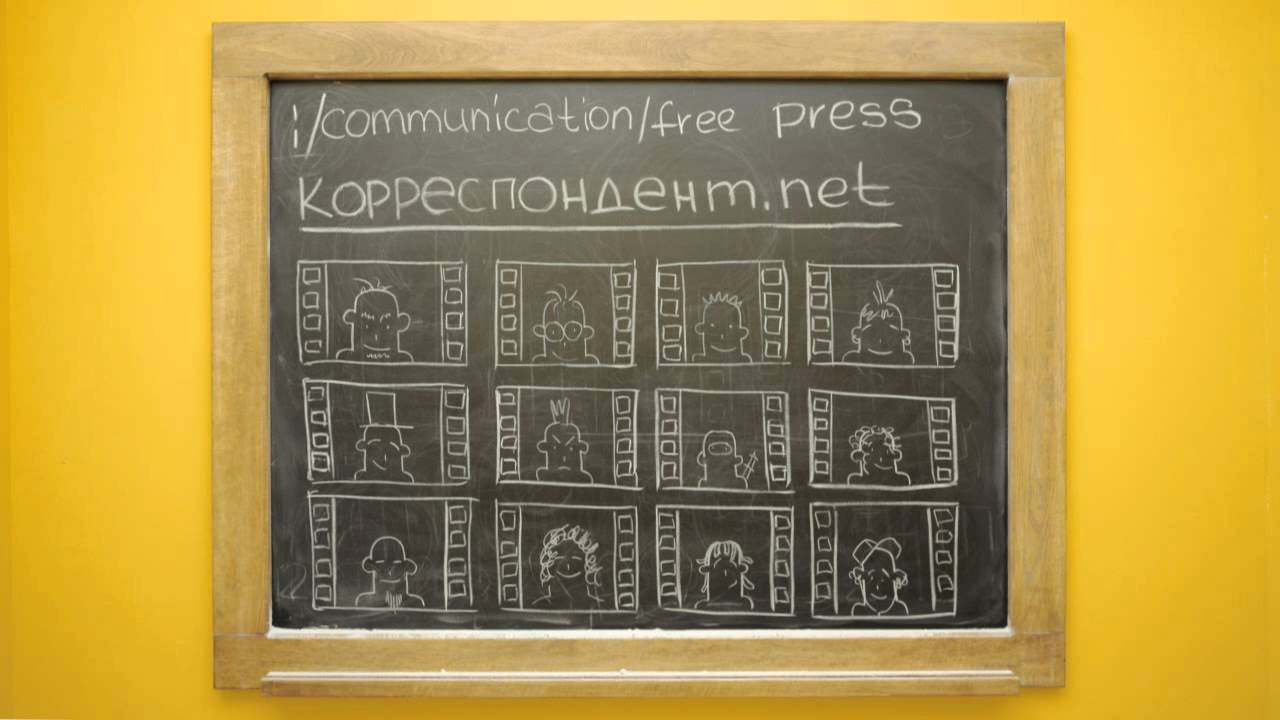 :/communication/free press
корреспондент.net